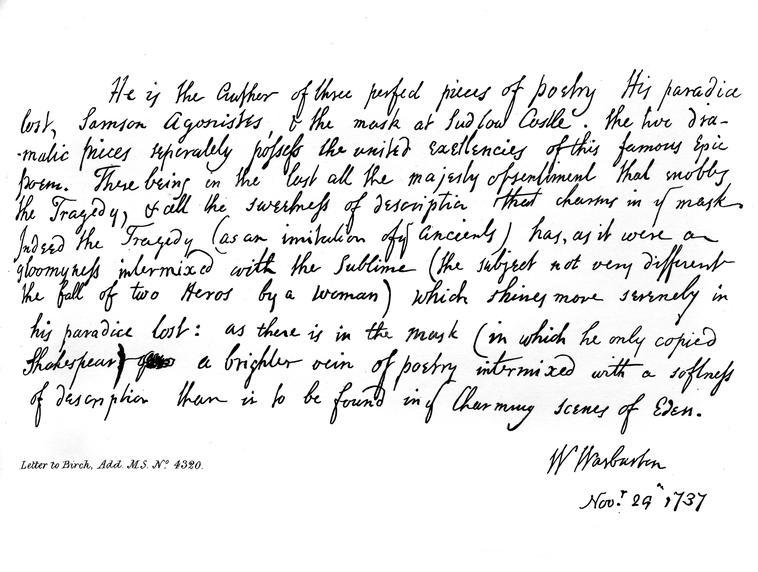 He is the Author of three perfect pieces of poetry His paradice
lost, Samson Agonistes, & the mask at Ludlow Castle. the two dra-
-matic pieces seperately possess the united excellencies of this famous Epic
poem. There being in the last all the majesty of sentiment that enobbs
the Tragedy, & all the sweetness of descriptio that charms in yͤ mask.
Indeed the Tragedy (as an imitation of yͤ Ancients) has, as it were a
gloominess intermixed with the Sublime (the subject not very different
the fall of two Heros by a woman) which shines more serenely in
his paradice lost: as there is in the mask (in which he only copied
Shakespear) a brighter vein of poetry intermixed with a softness
of description than is to be found in yͤ Charming scenes of Eden.
W Warburton
Novͬ. 29ͭͪ 1737
Letter to Birch, Add. M.S. Nº 4320.